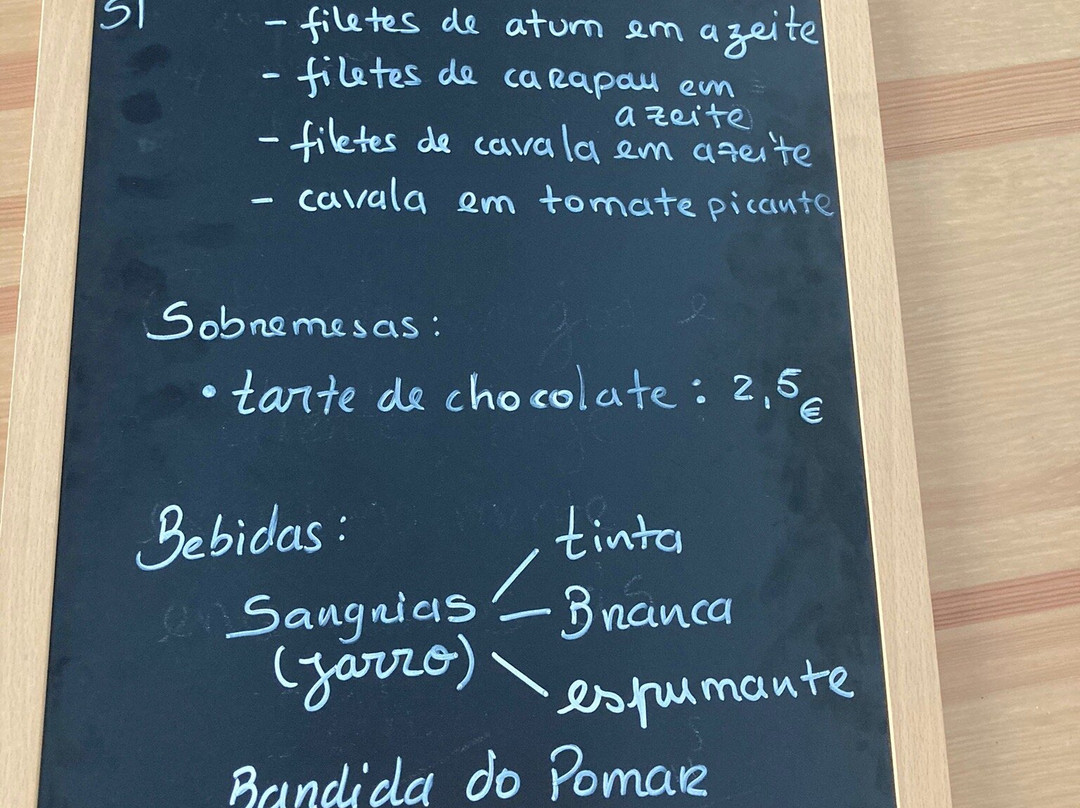 - filetes de atum em azeite
- filetes de carapau em
azeite
- filetes de cavala em azeite
- cavala em tomate picante
Sobremesas:
• tarte de chocolate: 2,5€
Bebidas:
tinta
Sangrias - Branca
(jarro)
espumante
Bandida do Pomar